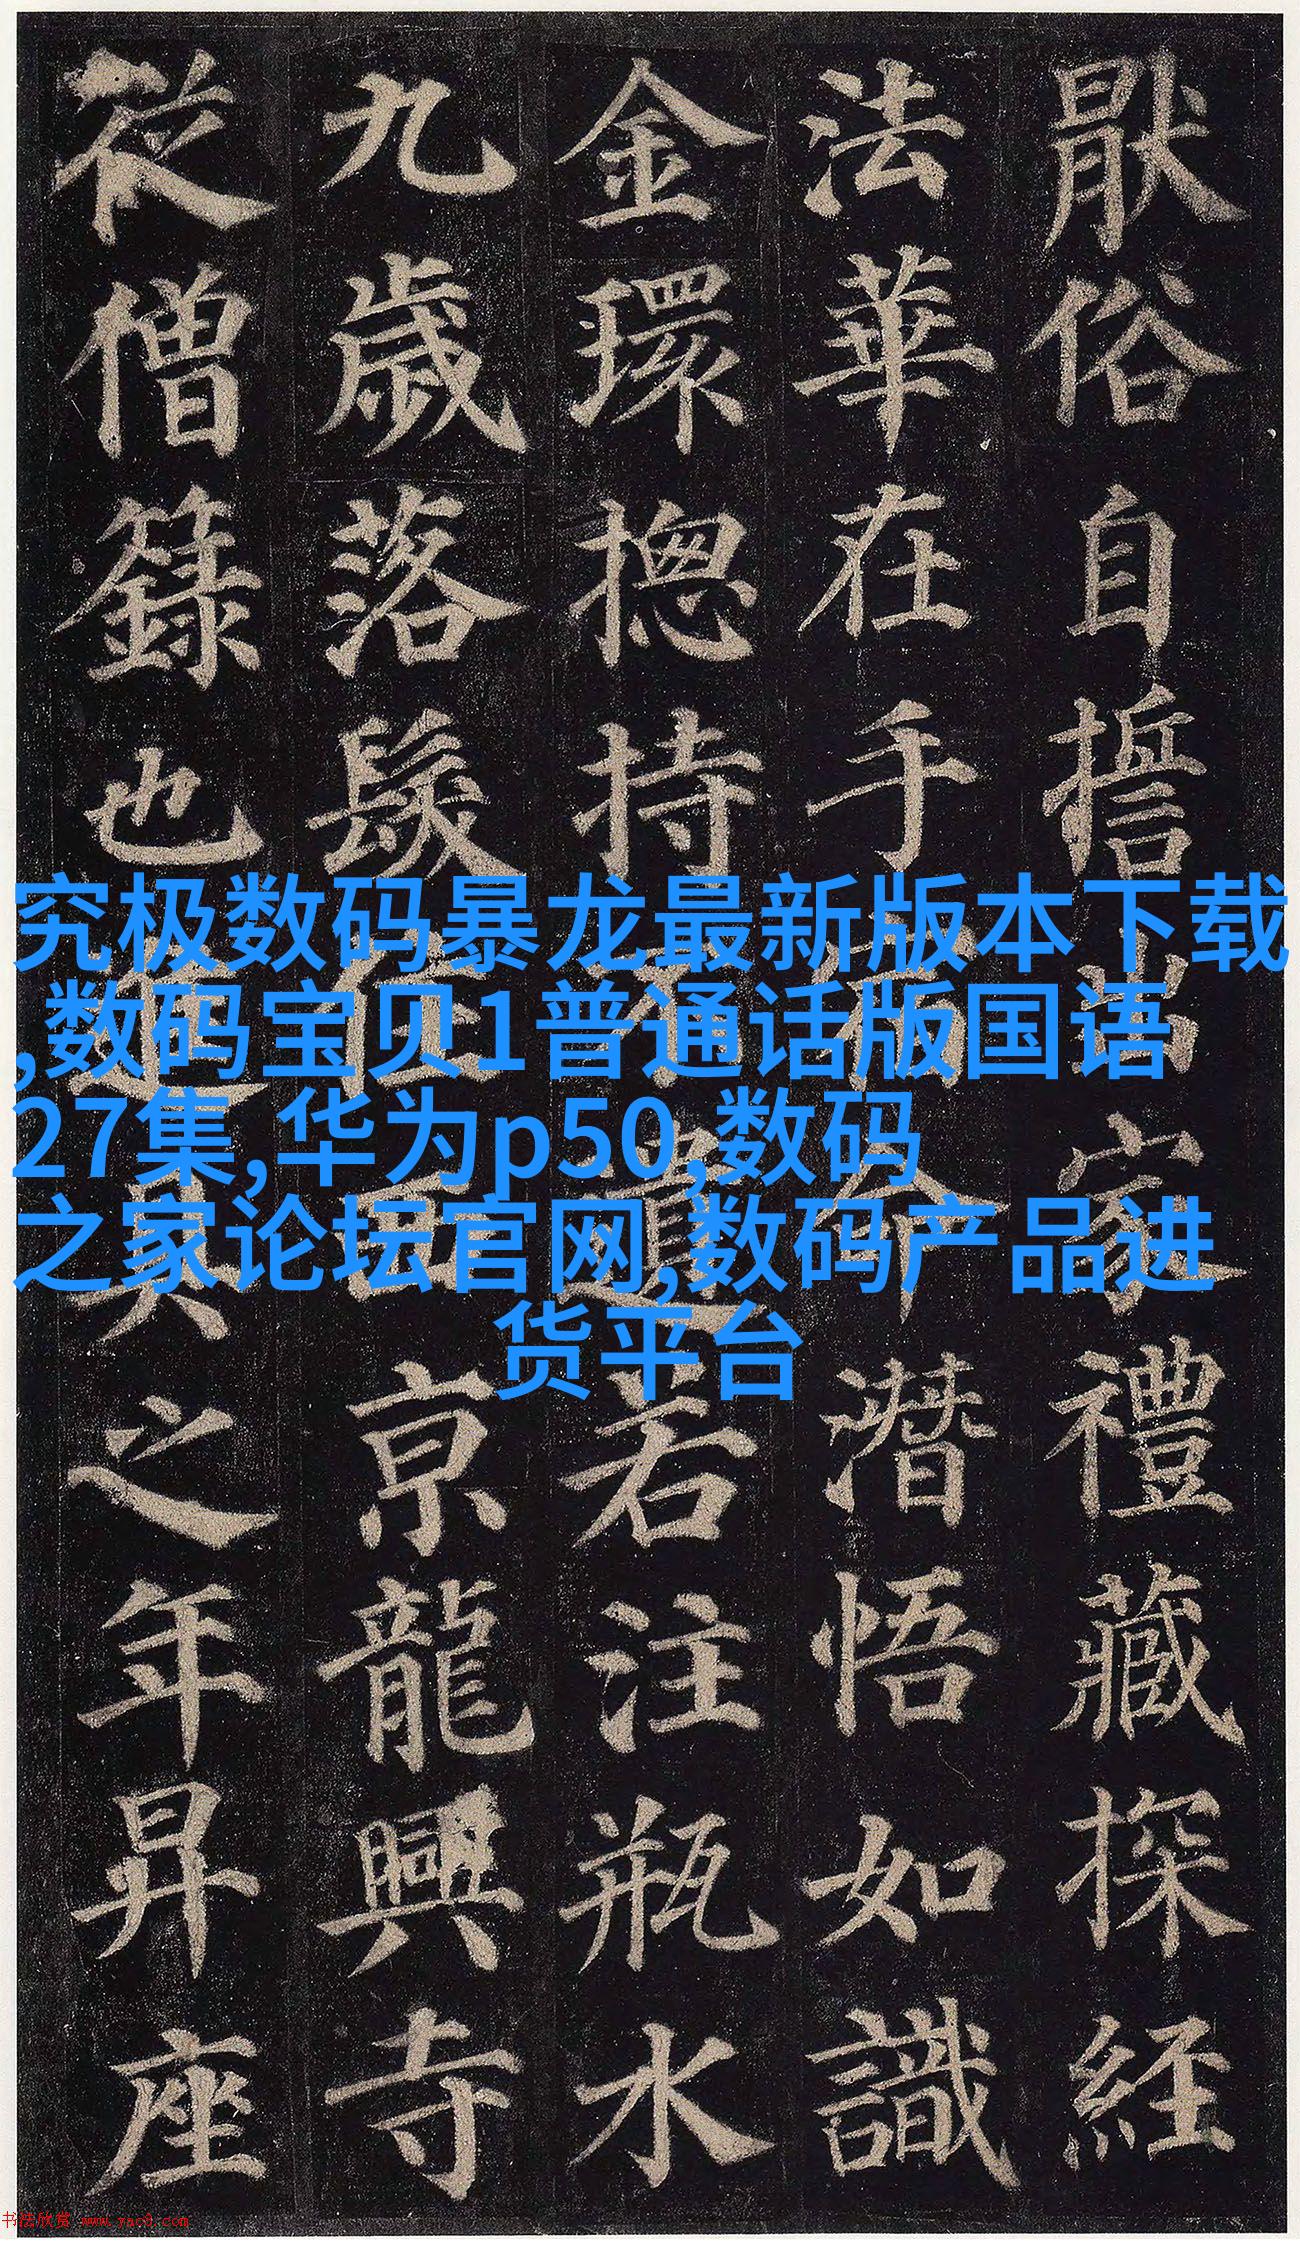 猒俗自誓出家禮藏探經
法華在手宿命潛悟如識
金環揔持不遺若注瓶水
九歲落髮住西京龍興寺
從僧籙也進具之年昇座
究极数码暴龙最新版本下载
,数码宝贝1普通话版国语
27集,华为p50,数码
之家论坛官网,数码产品进
货平台
书法欣赏 www.yac8.com